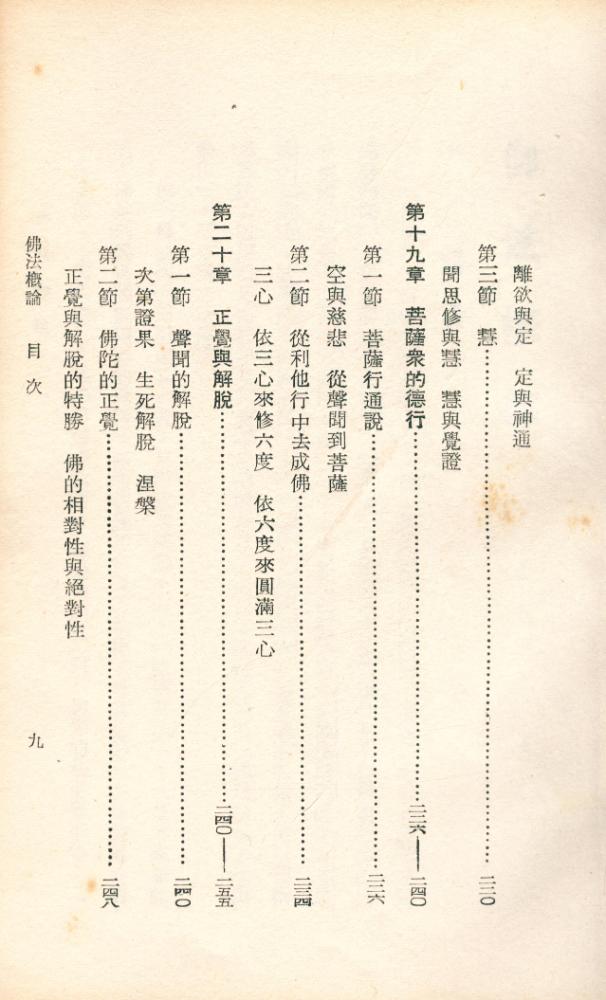 離欲與定　定與神通
第三節　慧……二二〇
聞思修與慧　慧與覺證
第十九章　菩薩衆的德行……二二六——二四〇
第一節　菩薩行通說……二二六
空與慈悲　從聲聞到菩薩
第二節　從利他行中去成佛……二三四
三心　依三心來修六度　依六度來圓滿三心
第二十章　正覺與解脫……二四〇——二五五
第一節　聲聞的解脫……二四〇
次第證果　生死解脫　涅槃
第二節　佛陀的正覺……二四八
正覺與解脫的特勝　佛的相對性與絕對性
佛法概論　目次　九